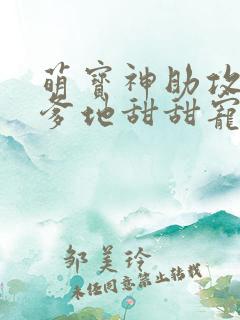 萌寶神助攻
爹地甜甜寵
鄒美玲
未经同意禁止转载